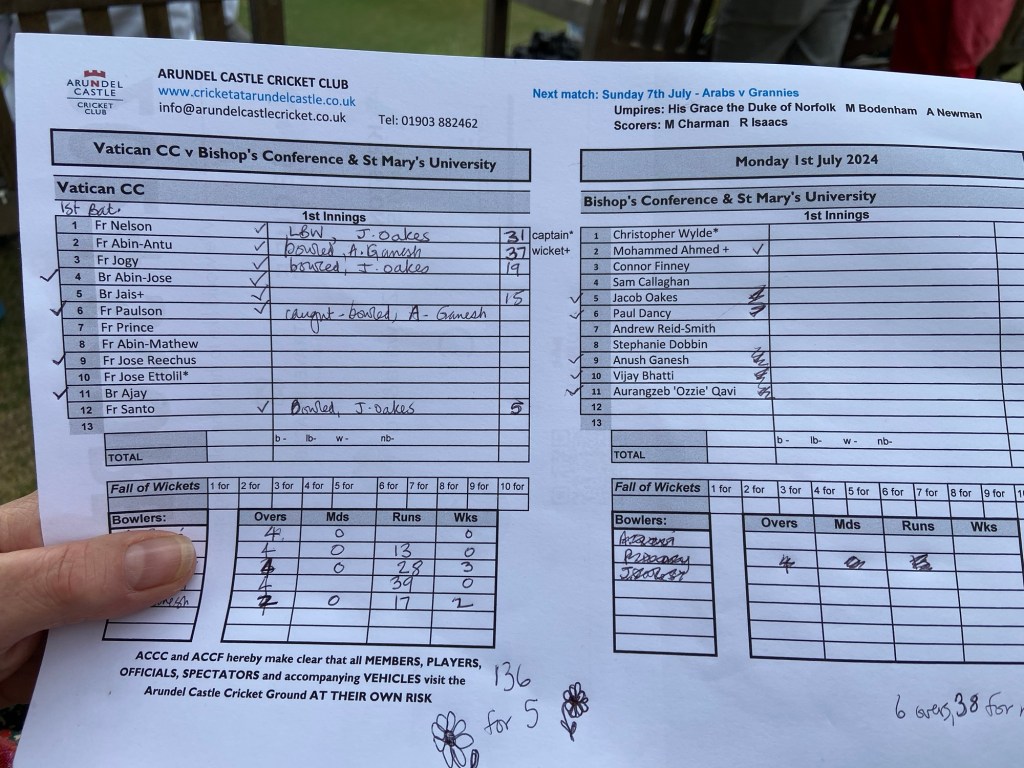 ARUNDEL
CASTLE
CRICKET
CLUB
ARUNDEL CASTLE CRICKET CLUB
www.cricketatarundelcastle.co.uk
info@arundelcastlecricket.co.uk Tel: 01903 882462
Next match: Sunday 7th July - Arabs v Grannies
Umpires: His Grace the Duke of Norfolk M Bodenham A Newman
Scorers: M Charman R Isaacs
Vatican CC v Bishop's Conference & St Mary's University
Monday 1st July 2024
Vatican CC
1st Bat.
1st Innings
1 Fr Nelson ✓ LBW, J. Oakes 31 captain*
2 Fr Abin-Antu ✓ bowled, A. Ganesh 37 wicket+
3 Fr Jogy ✓ bowled, J. oakes 19
✓ 4 Br Abin-Jose ✓
5 Br Jais+ ✓ 15
✓ 6 Fr Paulson ✓ caught-bowled, A- Ganesh
7 Fr Prince
8 Fr Abin-Mathew
✓ 9 Fr Jose Reechus
10 Fr Jose Ettolil*
✓ 11 Br Ajay
12 Fr Santo ✓ Bowled, J. oakes 5
13
b - lb- w - nb-
TOTAL
Fall of Wickets 1 for 2 for 3 for 4 for 5 for 6 for 7 for 8 for 9 for 10 for
Bowlers: Overs Mds Runs Wks
4 0 0
4 0 13 0
4 0 28 3
4 39 0
2 0 17 2
ACCC and ACCF hereby make clear that all MEMBERS, PLAYERS,
OFFICIALS, SPECTATORS and accompanying VEHICLES visit the
Arundel Castle Cricket Ground AT THEIR OWN RISK
136
for 5
Bishop's Conference & St Mary's University
1st Innings
1 Christopher Wylde*
2 Mohammed Ahmed + ✓
3 Connor Finney
4 Sam Callaghan
✓ 5 Jacob Oakes
✓ 6 Paul Dancy
7 Andrew Reid-Smith
8 Stephanie Dobbin
✓ 9 Anush Ganesh
✓ 10 Vijay Bhatti
✓ 11 Aurangzeb 'Ozzie' Qavi
12
13
b - lb- w - nb-
TOTAL
Fall of Wickets 1 for 2 for 3 for 4 for 5 for 6 for 7 for 8 for 9 for
Bowlers: Overs Mds Runs Wks
6 overs, 38 for